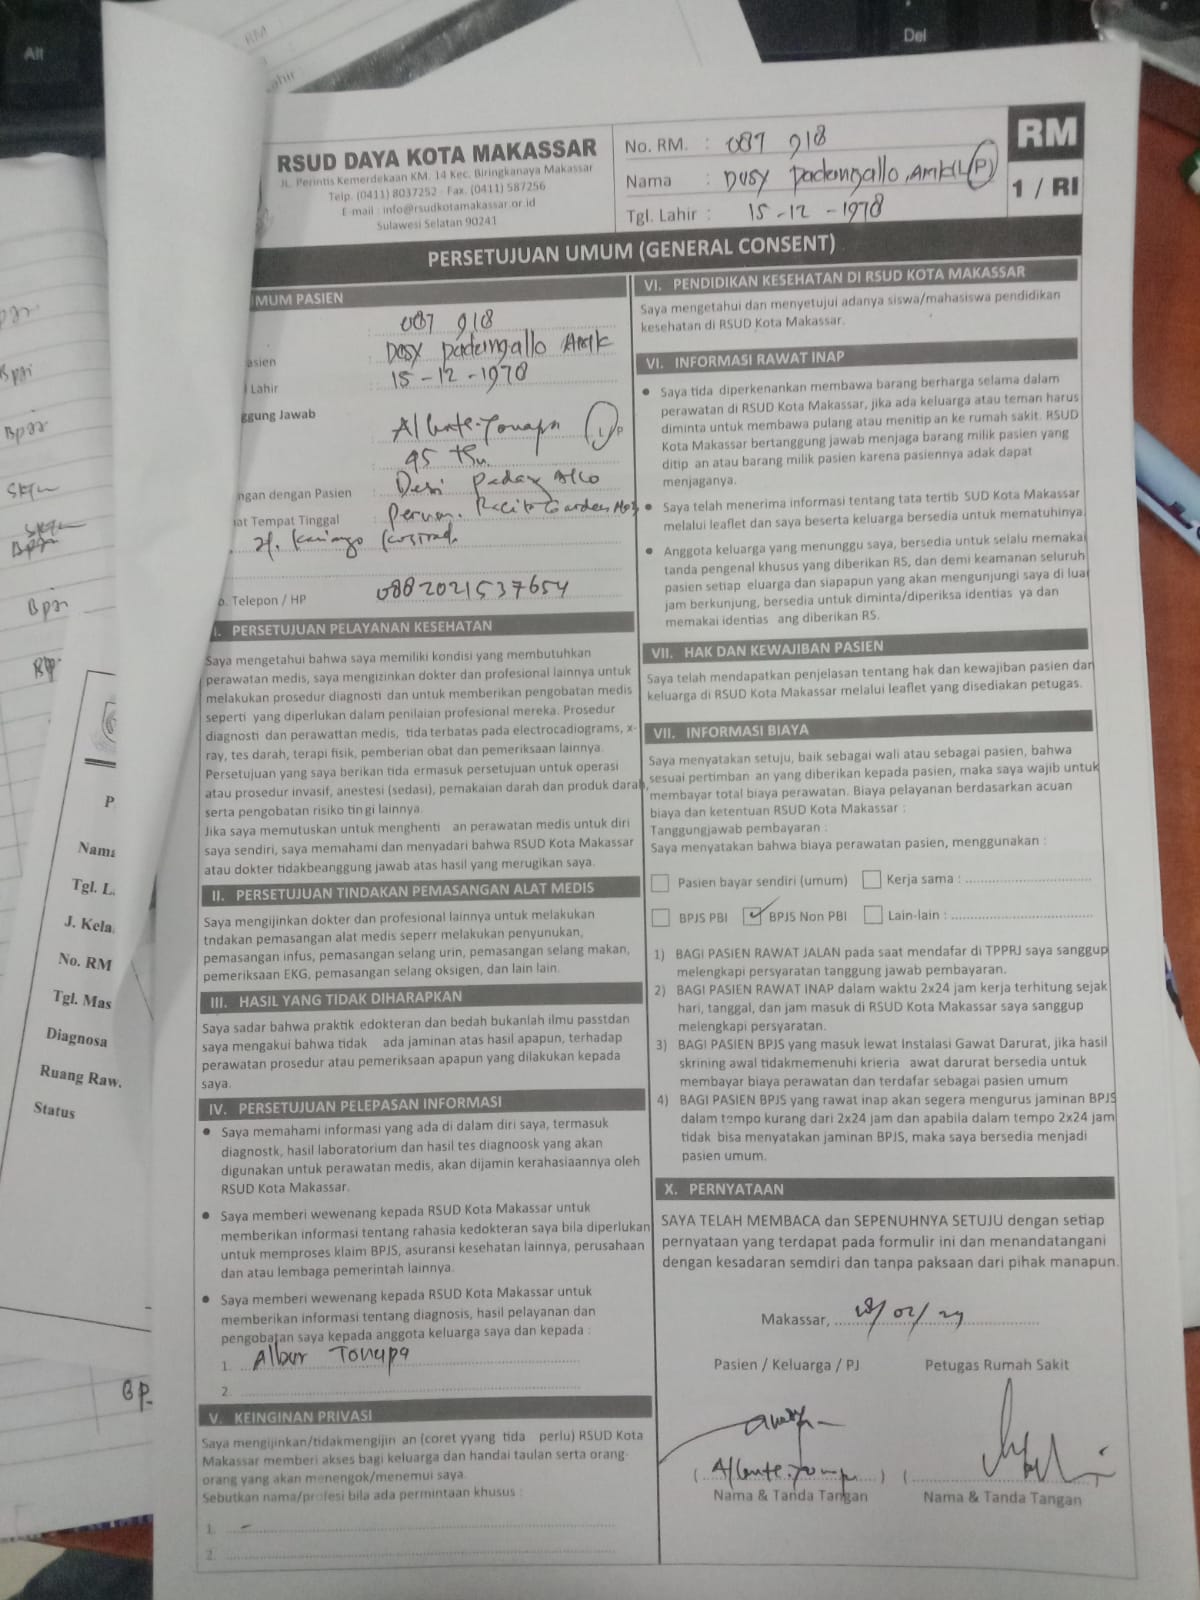 Alt
Del
RM
RSUD DAYA KOTA MAKASSAR
JL. Perintis Kemerdekaan KM. 14 Kec. Biringkanaya Makassar
Telp. (0411) 8037252 - Fax. (0411) 587256
E-mail : info@rsudkotamakassar.or.id
Sulawesi Selatan 90241
No. RM. : 087 918
Nama : Desy Padangallo, Amk (L/P)
Tgl. Lahir : 15-12-1978
RM
1 / RI
PERSETUJUAN UMUM (GENERAL CONSENT)
UMUM PASIEN
: 087 918
asien : Desy Padangallo Amk
Lahir : 15-12-1978
ggung Jawab
: L P
: 45 thn.
ngan dengan Pasien :
at Tempat Tinggal : Perum.
o. Telepon / HP : 0882021537654
I. PERSETUJUAN PELAYANAN KESEHATAN
Saya mengetahui bahwa saya memiliki kondisi yang membutuhkan
perawatan medis, saya mengizinkan dokter dan profesional lainnya untuk
melakukan prosedur diagnosti dan untuk memberikan pengobatan medis
seperti yang diperlukan dalam penilaian profesional mereka. Prosedur
diagnosti dan perawattan medis, tida terbatas pada electrocadiograms, x-
ray, tes darah, terapi fisik, pemberian obat dan pemeriksaan lainnya.
Persetujuan yang saya berikan tida ermasuk persetujuan untuk operasi
atau prosedur invasif, anestesi (sedasi), pemakaian darah dan produk darah,
serta pengobatan risiko tingi lainnya.
Jika saya memutuskan untuk menghenti an perawatan medis untuk diri
saya sendiri, saya memahami dan menyadari bahwa RSUD Kota Makassar
atau dokter tidakbeanggung jawab atas hasil yang merugikan saya.
II. PERSETUJUAN TINDAKAN PEMASANGAN ALAT MEDIS
Saya mengijinkan dokter dan profesional lainnya untuk melakukan
tndakan pemasangan alat medis seperr melakukan penyunukan,
pemasangan infus, pemasangan selang urin, pemasangan selang makan,
pemeriksaan EKG, pemasangan selang oksigen, dan lain lain.
III. HASIL YANG TIDAK DIHARAPKAN
Saya sadar bahwa praktik edokteran dan bedah bukanlah ilmu passtdan
saya mengakui bahwa tidak ada jaminan atas hasil apapun, terhadap
perawatan prosedur atau pemeriksaan apapun yang dilakukan kepada
saya.
IV. PERSETUJUAN PELEPASAN INFORMASI
● Saya memahami informasi yang ada di dalam diri saya, termasuk
diagnostk, hasil laboratorium dan hasil tes diagnoosk yang akan
digunakan untuk perawatan medis, akan dijamin kerahasiaannya oleh
RSUD Kota Makassar.
● Saya memberi wewenang kepada RSUD Kota Makassar untuk
memberikan informasi tentang rahasia kedokteran saya bila diperlukan
untuk memproses klaim BPJS, asuransi kesehatan lainnya, perusahaan
dan atau lembaga pemerintah lainnya.
● Saya memberi wewenang kepada RSUD Kota Makassar untuk
memberikan informasi tentang diagnosis, hasil pelayanan dan
pengobatan saya kepada anggota keluarga saya dan kepada :
1. Albur Tonapa
2.
V. KEINGINAN PRIVASI
Saya mengijinkan/tidakmengijin an (coret yyang tida perlu) RSUD Kota
Makassar memberi akses bagi keluarga dan handai taulan serta orang-
orang yang akan menengok/menemui saya.
Sebutkan nama/profesi bila ada permintaan khusus :
1. -
2.
VI. PENDIDIKAN KESEHATAN DI RSUD KOTA MAKASSAR
Saya mengetahui dan menyetujui adanya siswa/mahasiswa pendidikan
kesehatan di RSUD Kota Makassar.
VI. INFORMASI RAWAT INAP
● Saya tida diperkenankan membawa barang berharga selama dalam
perawatan di RSUD Kota Makassar, jika ada keluarga atau teman harus
diminta untuk membawa pulang atau menitip an ke rumah sakit. RSUD
Kota Makassar bertanggung jawab menjaga barang milik pasien yang
ditip an atau barang milik pasien karena pasiennya adak dapat
menjaganya.
● Saya telah menerima informasi tentang tata tertib SUD Kota Makassar
melalui leaflet dan saya beserta keluarga bersedia untuk mematuhinya.
● Anggota keluarga yang menunggu saya, bersedia untuk selalu memakai
tanda pengenal khusus yang diberikan RS, dan demi keamanan seluruh
pasien setiap eluarga dan siapapun yang akan mengunjungi saya di luar
jam berkunjung, bersedia untuk diminta/diperiksa identias ya dan
memakai identias ang diberikan RS.
VII. HAK DAN KEWAJIBAN PASIEN
Saya telah mendapatkan penjelasan tentang hak dan kewajiban pasien dan
keluarga di RSUD Kota Makassar melalui leaflet yang disediakan petugas.
VII. INFORMASI BIAYA
Saya menyatakan setuju, baik sebagai wali atau sebagai pasien, bahwa
sesuai pertimban an yang diberikan kepada pasien, maka saya wajib untuk
membayar total biaya perawatan. Biaya pelayanan berdasarkan acuan
biaya dan ketentuan RSUD Kota Makassar :
Tanggungjawab pembayaran :
Saya menyatakan bahwa biaya perawatan pasien, menggunakan :
Pasien bayar sendiri (umum) Kerja sama :
BPJS PBI ✓ BPJS Non PBI Lain-lain :
1) BAGI PASIEN RAWAT JALAN pada saat mendafar di TPPRJ saya sanggup
melengkapi persyaratan tanggung jawab pembayaran.
2) BAGI PASIEN RAWAT INAP dalam waktu 2x24 jam kerja terhitung sejak
hari, tanggal, dan jam masuk di RSUD Kota Makassar saya sanggup
melengkapi persyaratan.
3) BAGI PASIEN BPJS yang masuk lewat Instalasi Gawat Darurat, jika hasil
skrining awal tidakmemenuhi krieria awat darurat bersedia untuk
membayar biaya perawatan dan terdafar sebagai pasien umum
4) BAGI PASIEN BPJS yang rawat inap akan segera mengurus jaminan BPJS
dalam tempo kurang dari 2x24 jam dan apabila dalam tempo 2x24 jam
tidak bisa menyatakan jaminan BPJS, maka saya bersedia menjadi
pasien umum.
X. PERNYATAAN
SAYA TELAH MEMBACA dan SEPENUHNYA SETUJU dengan setiap
pernyataan yang terdapat pada formulir ini dan menandatangani
dengan kesadaran semdiri dan tanpa paksaan dari pihak manapun.
Makassar,
Pasien / Keluarga / PJ Petugas Rumah Sakit
Nama & Tanda Tangan Nama & Tanda Tangan
P
Nama
Tgl. L.
J. Kela
No. RM
Tgl. Mas
Diagnosa
Ruang Raw.
Status